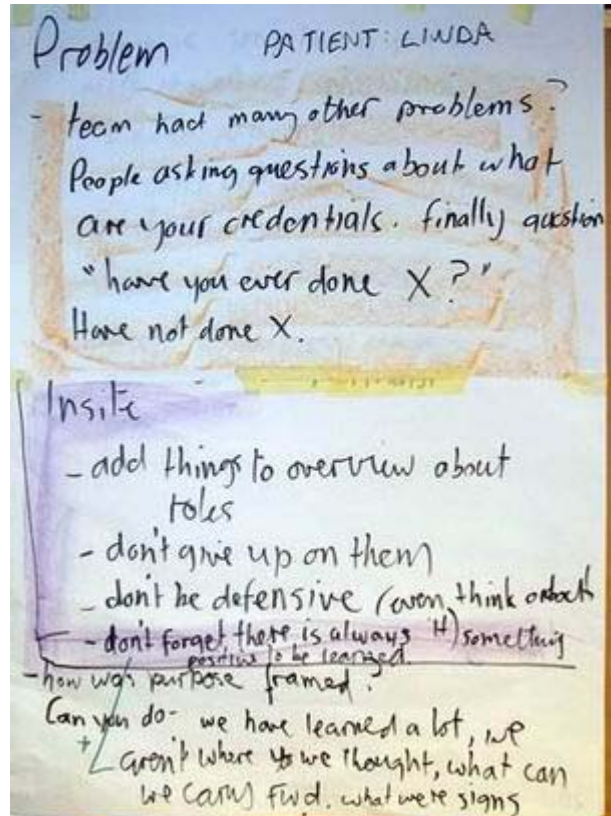 Problem PATIENT: LINDA
- team had many other problems.
People asking questions about what
are your credentials. finally question
"have you ever done X?"
Have not done X.
Insite
- add things to overview about
roles
- don't give up on them
- don't be defensive (even think
- don't forget there is always it) something
positive to be learned.
- how was purpose framed?
Can you do - we have learned a lot, we
+ aren't where we thought, what can
we carry fwd. what were signs